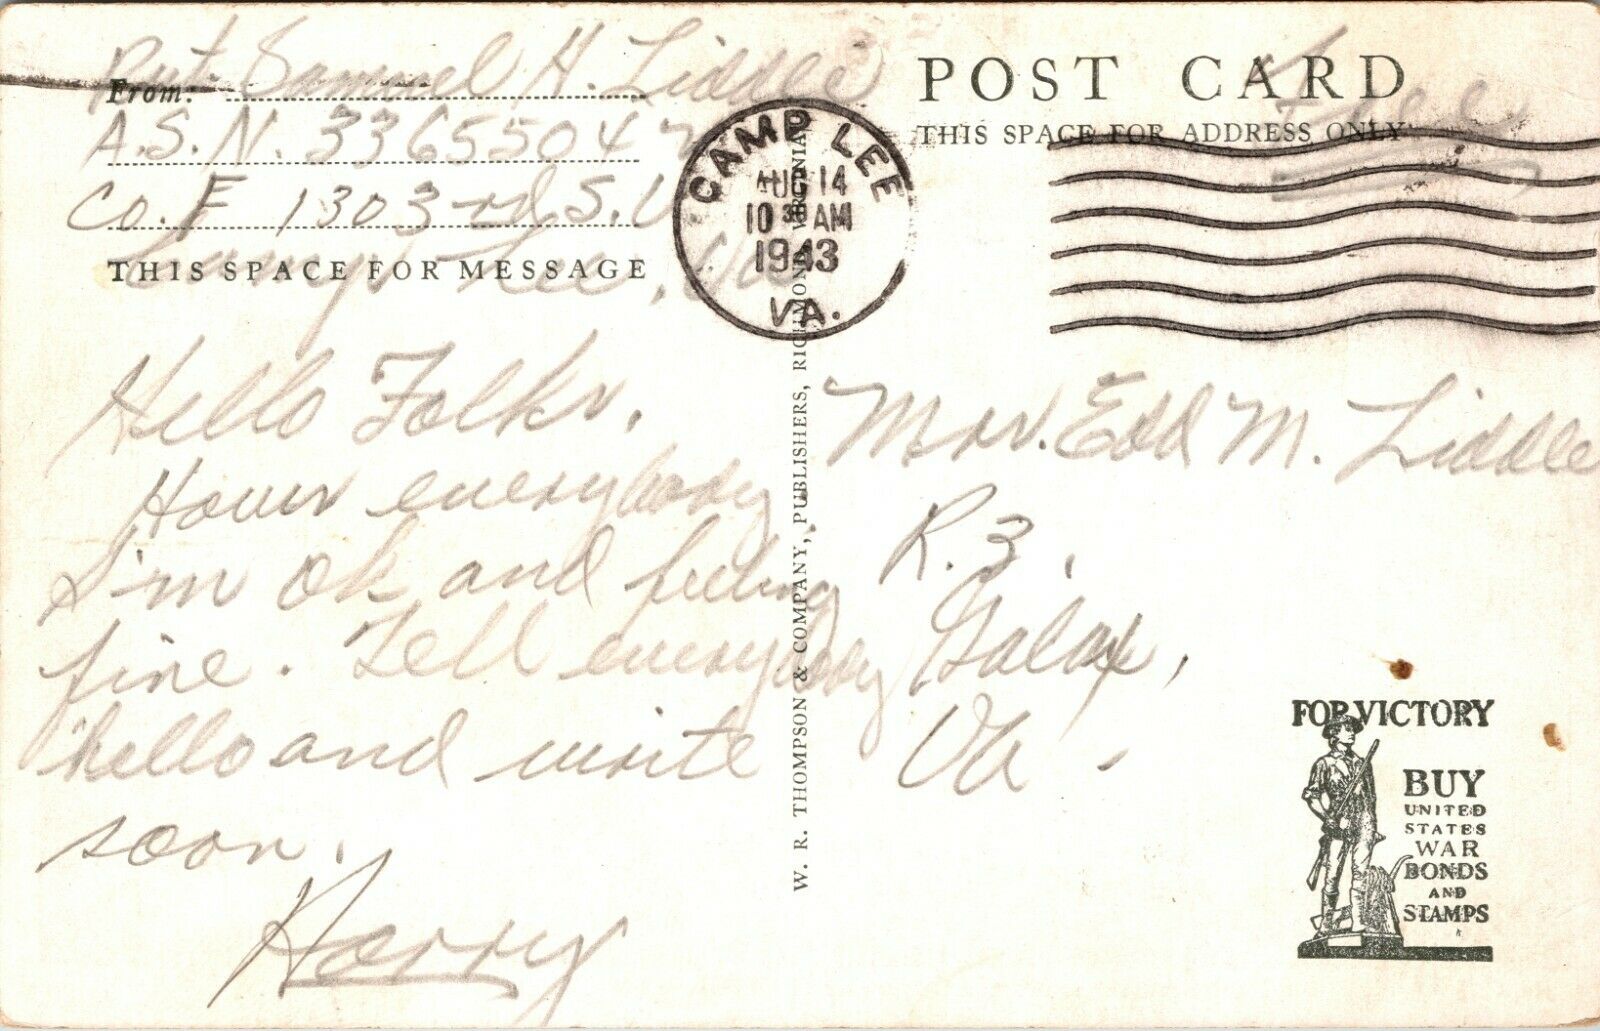 Pvt. Samuel H. Liddle
From:
A.S.N. 33655047
Co. F 1303rd S.U.
Camp Lee, Va.
THIS SPACE FOR MESSAGE
Hello Folks,
Hows everybody.
I'm ok and feeling
fine. Tell everybody
hello and write
soon.
Harry
W. R. THOMPSON & COMPANY, PUBLISHERS, RICHMOND, VIRGINIA
CAMP LEE
AUG 14
10 30 AM
1943
VA.
POST CARD
Free
THIS SPACE FOR ADDRESS ONLY
Mrs. Edd M. Liddle
R. 3,
Galax,
Va.
FOR VICTORY
BUY
UNITED
STATES
WAR
BONDS
AND
STAMPS